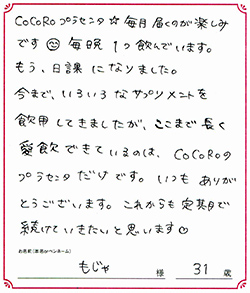 CoCoRoプラセンタ☆毎月届くのが楽しみ
です☺ 毎晩1つ飲んでいます。
もう、日課になりました。
今まで、いろいろなサプリメントを
飲用してきましたが、ここまで長く
愛飲できているのは、CoCoRoの
プラセンタだけです。いつもありが
とうございます。これからも定期で
続けていきたいと思います♡
お名前(本名orペンネーム)
もじゃ 様 31 歳